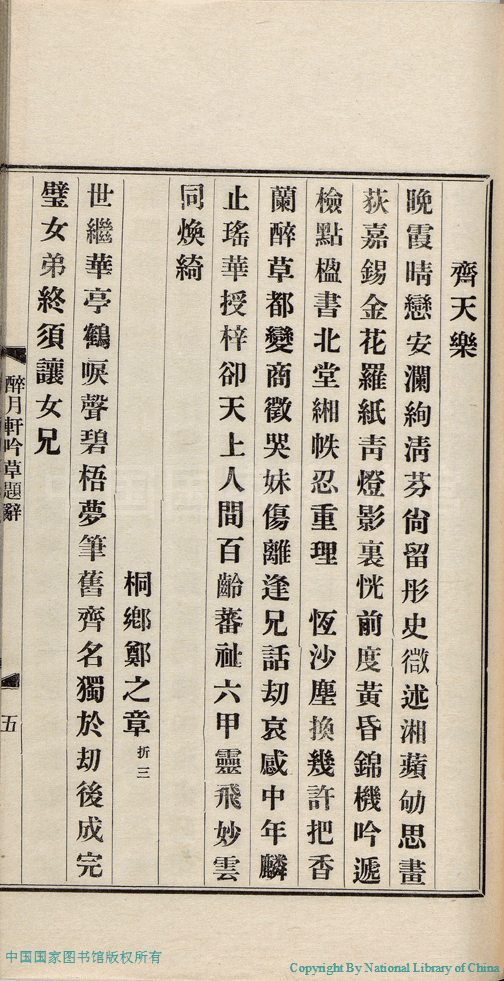 齊天樂
晚霞晴戀安瀾絢淸芬尙留彤史徵述湘蘋劬思畫
荻嘉錫金花羅紙靑燈影裏恍前度黃昏錦機吟遞
檢點楹書北堂緗帙忍重理　恆沙塵換幾許把香
蘭醉草都變商徵哭妹傷離逢兄話劫哀感中年麟
止瑤華授梓卻天上人間百齡蕃祉六甲靈飛妙雲
同煥綺
桐鄕鄭之章折三
世繼華亭鶴唳聲碧梧夢筆舊齊名獨於劫後成完
璧女弟終須讓女兄
醉月軒吟草題辭
五
中国国家图书馆版权所有
Copyright By National Library of China